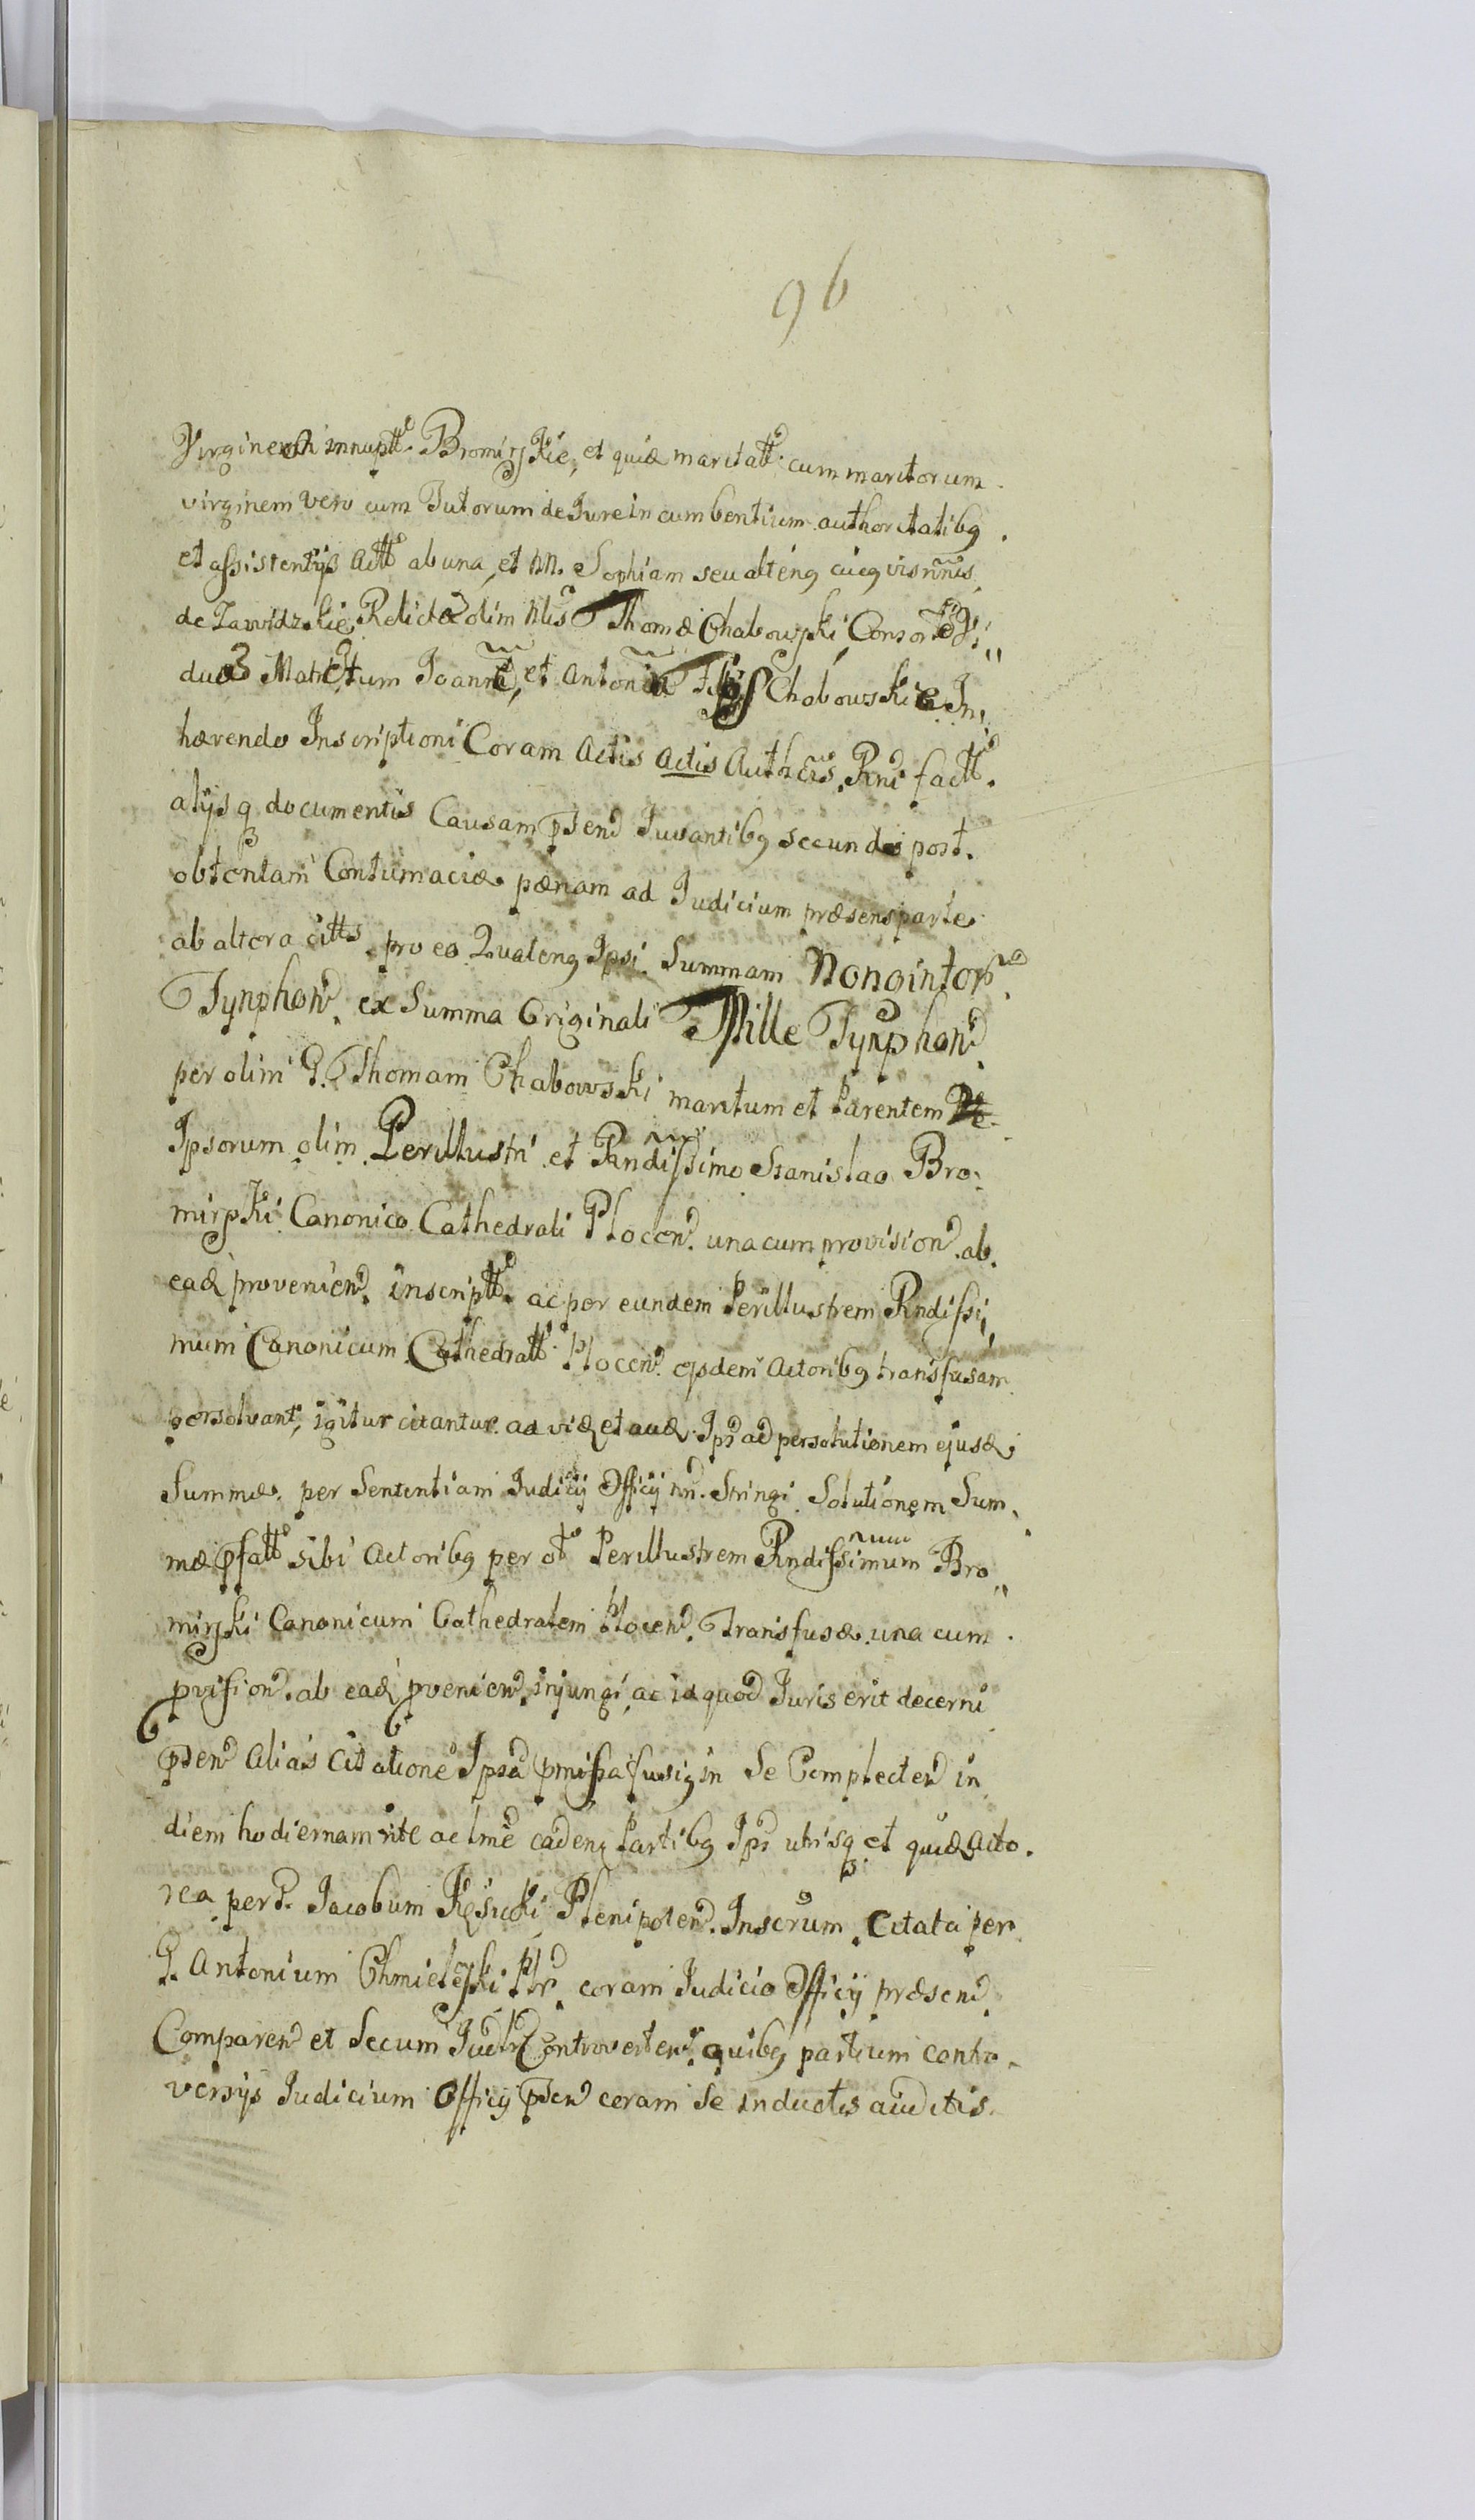 96
Virginem innuptt. Bromirskie, et quidē maritatt. cum maritorum
virginem vero cum Tutorum de Jure incumbentium authoritatibq
et assistentijs Actt ab una, et NN. Sophiam seu alteng cuiqvis nñis
de Zawidzkie Relictā olim Nlis Thomæ Chabowski Consortē
duā Matrē tum Joannē, et Antoniū Chabowskie In,
hærendo Inscriptioni Coram Actis Actis Authcis Rnd factt.
alijsq documentis Causam pntend Juvantibq secundo post
obtentam Contumaciæ pænam ad Judicium præsens parte
ab altera citts. pro eo Quateng Ipsi Summam Nongintor
Tynphond. ex Summa Originali Mille Tynphond.
per olim G. Thomam Chabowski maritum et Parentem
Ipsorum olim Perillustri et Rndissimo Stanislao Bro,
mirski Canonico Cathedrali Plocend. una cum provisiond. ab
eadē proveniend. inscriptt. ac per eundem Perillustrem Rndissi,
mum Canonicum Cathedratt. Plocend. ejsdem Actoribq transfusam
persolvant, igitur citantur ad vidē et audē Ipsd ad persolutionem ejusdē
Summæ per Sententiam Judicij Officij nri. Stringi Solutionem Sum,
mæ pfatt sibi Actoribq per Perillustrem Rndissimum Bro,,
mirski Canonicum Cathedralem Plocend. Transfusæ una cum
pvisiond. ab eadē pveniend. injungi, ac id quod Juris erit decerni
pntend alias Citatione Ipsa pmissa fusiq in Se Complectend in
diem hodiernam rite ac lme cadeng Partibq Ipsd utrisq et quidē Acto,
rea per G. Jacobum Plenipotend. Inserum. Citata per
G. Antonium Chmielewski coram Judicio Officij præsend.
Comparend et Secum Judtr Controvertend. quibq partium contro,
versijs Judicium Officij pntend coram Se inductis auditis